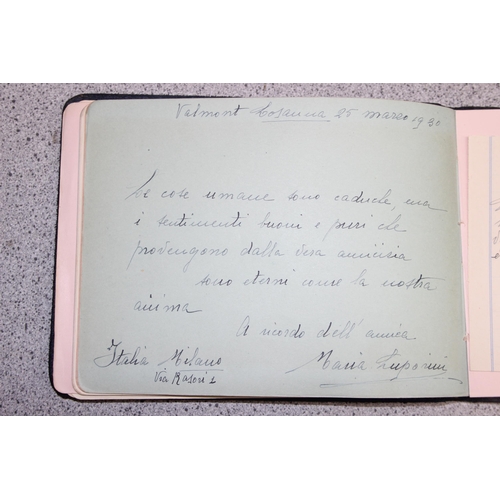 Valmont Losanna 25 marzo 1930
Le cose umane sono caduche, ma
i sentimenti buoni e puri che
provengono dalla vera amicisia
sono eterni come la nostra
anima
A ricordo dell'amica
Maria Luporini
Italia Milano
Via Rasori 1